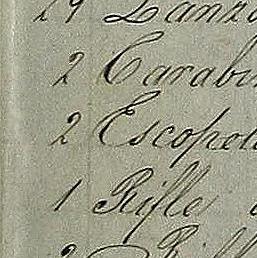 29 Lanza
2 Carabi
2 Escopet
1 Rifle
2